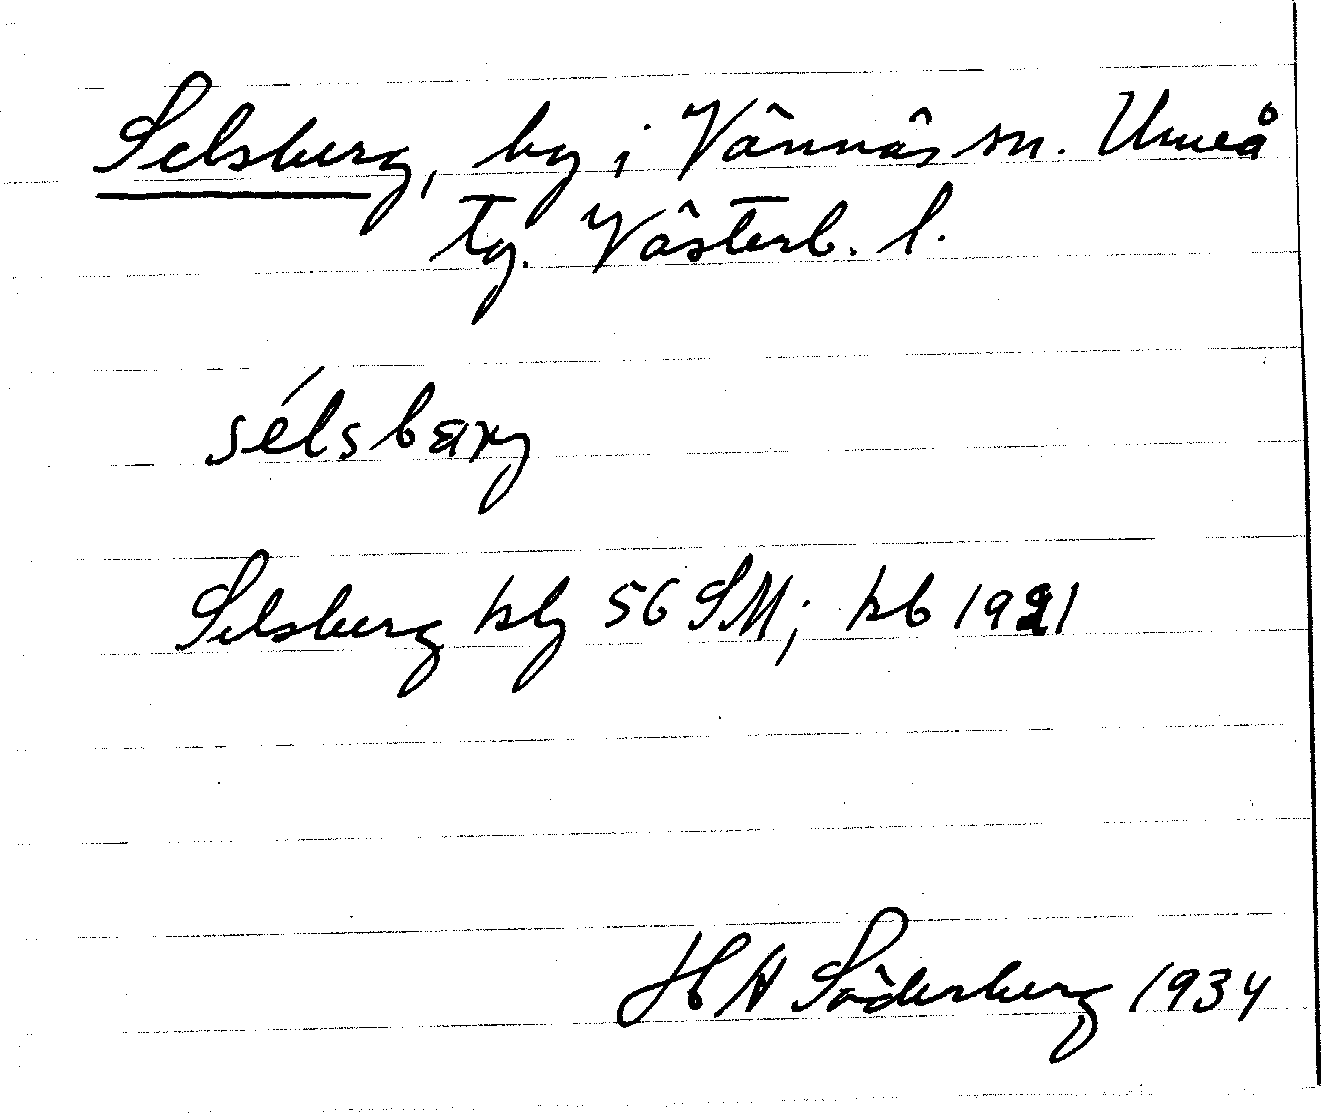 Selsberg, by i Vännäs sn. Umeå
tg. Västerb. l.
sélsbærg
Selsberg kbg 56 SM; kb 1921
H A Söderberg 1934